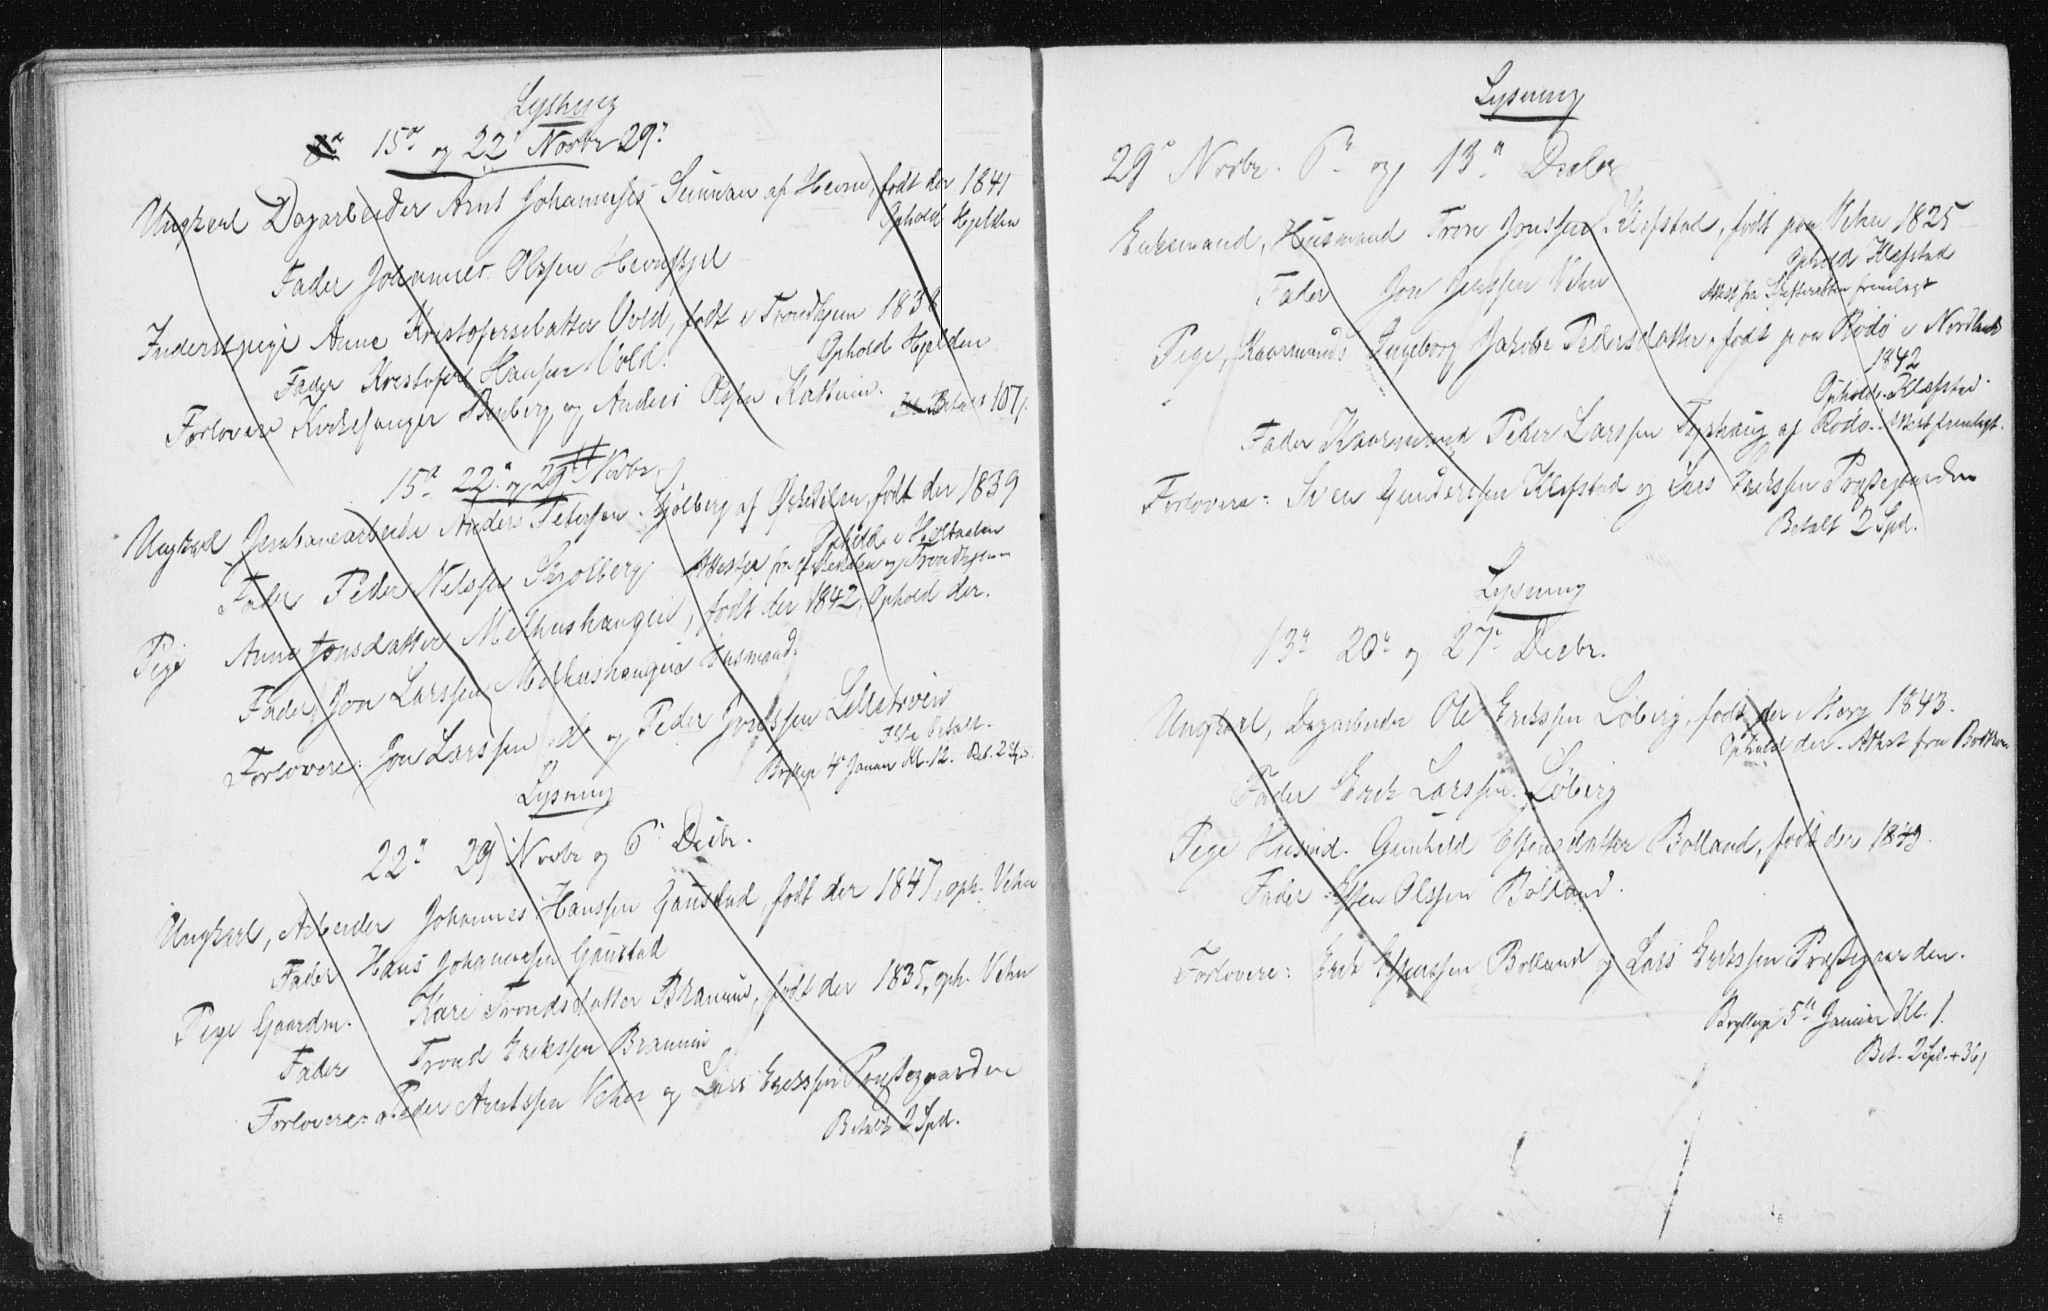 Lysning
8de 15de og 22de Novbr 29de
Ungkarl Dagarbeider Arnt Johannesen af Hevne, født der 1841
Ophold Hjelden
Fader Johannes Olssen Hevnskjel
Inderstpige Anne Kristofersdatter Vold, født i Trondhjem 1838
Ophold Hjelden
Fader Kristofer Hansen Vold.
Forlovere Kirkesanger og Anders Olsen Kattem. Betalt 107
15de 22de og 29de Novbr
Ungkarl Jernbanearbeider Anders Petersen Sjølberg af født der 1839
Ophold i Holtaalen
Fader Peder Nelssen Attester fra og Trondhjem
Pige Anne Jonsdatter Melhushaugen, født der 1842, Ophold der.
Fader Jon Larssen Melhushaugen Husmand.
Forlovere: Jon Larssen do og Peder Jonssen
Ikke betalt.
Bryllup 4de Januar Kl. 12. Bet. 2 Spd.
Lysning
22de 29de Novbr og 6de Decbr.
Ungkarl, Arbeider Johannes Hanssen Gaustad, født der 1847, oph. Vehn
Fader Hans Johannessen Gaustad
Pige Gaardm. Kari Trondsdatter født der 1835, oph. Vehn
Fader Trond Erikssen
Forlovere: Peder Arntssen Vehn og Lars Erikssen Præstegaarden
Betalt 2 Spd.
Lysning
29de Novbr. 6te og 13de Decbr
Enkemand, Husmand Tron Jonssen Klefstad, født paa Vehn 1825
Ophold Klefstad
Fader Jon Jenssen Vehn Attest fra Skifteretten fremlagt
Pige, Kaarmands Ingeborg Jakobe Pedersdatter, født paa Rødø i Nordland
1842
Ophold Klefstad
Fader Kaarmand Peder Larssen af Rødø. Attest fremlagt.
Forlovere: Sven Gunderssen Klefstad og Lars Erikssen Præstegaarden
Betalt 2 Spd.
Lysning
13de 20de og 27de Decbr.
Ungkarl, Dagarbeider Ole Erikssen Løberg, født der 1843.
Ophold der. Attest fra
Fader Erik Larssen Løberg
Pige Husmd. Gunhild Estensdatter Bolland, født der 1843.
Fader Esten Olssen Bolland.
Forlovere: Erik Estenssen Bolland og Lars Erikssen Præstegaarden.
Bryllup 5te Januar Kl. 1.
Bet. 2 Spd. + 36